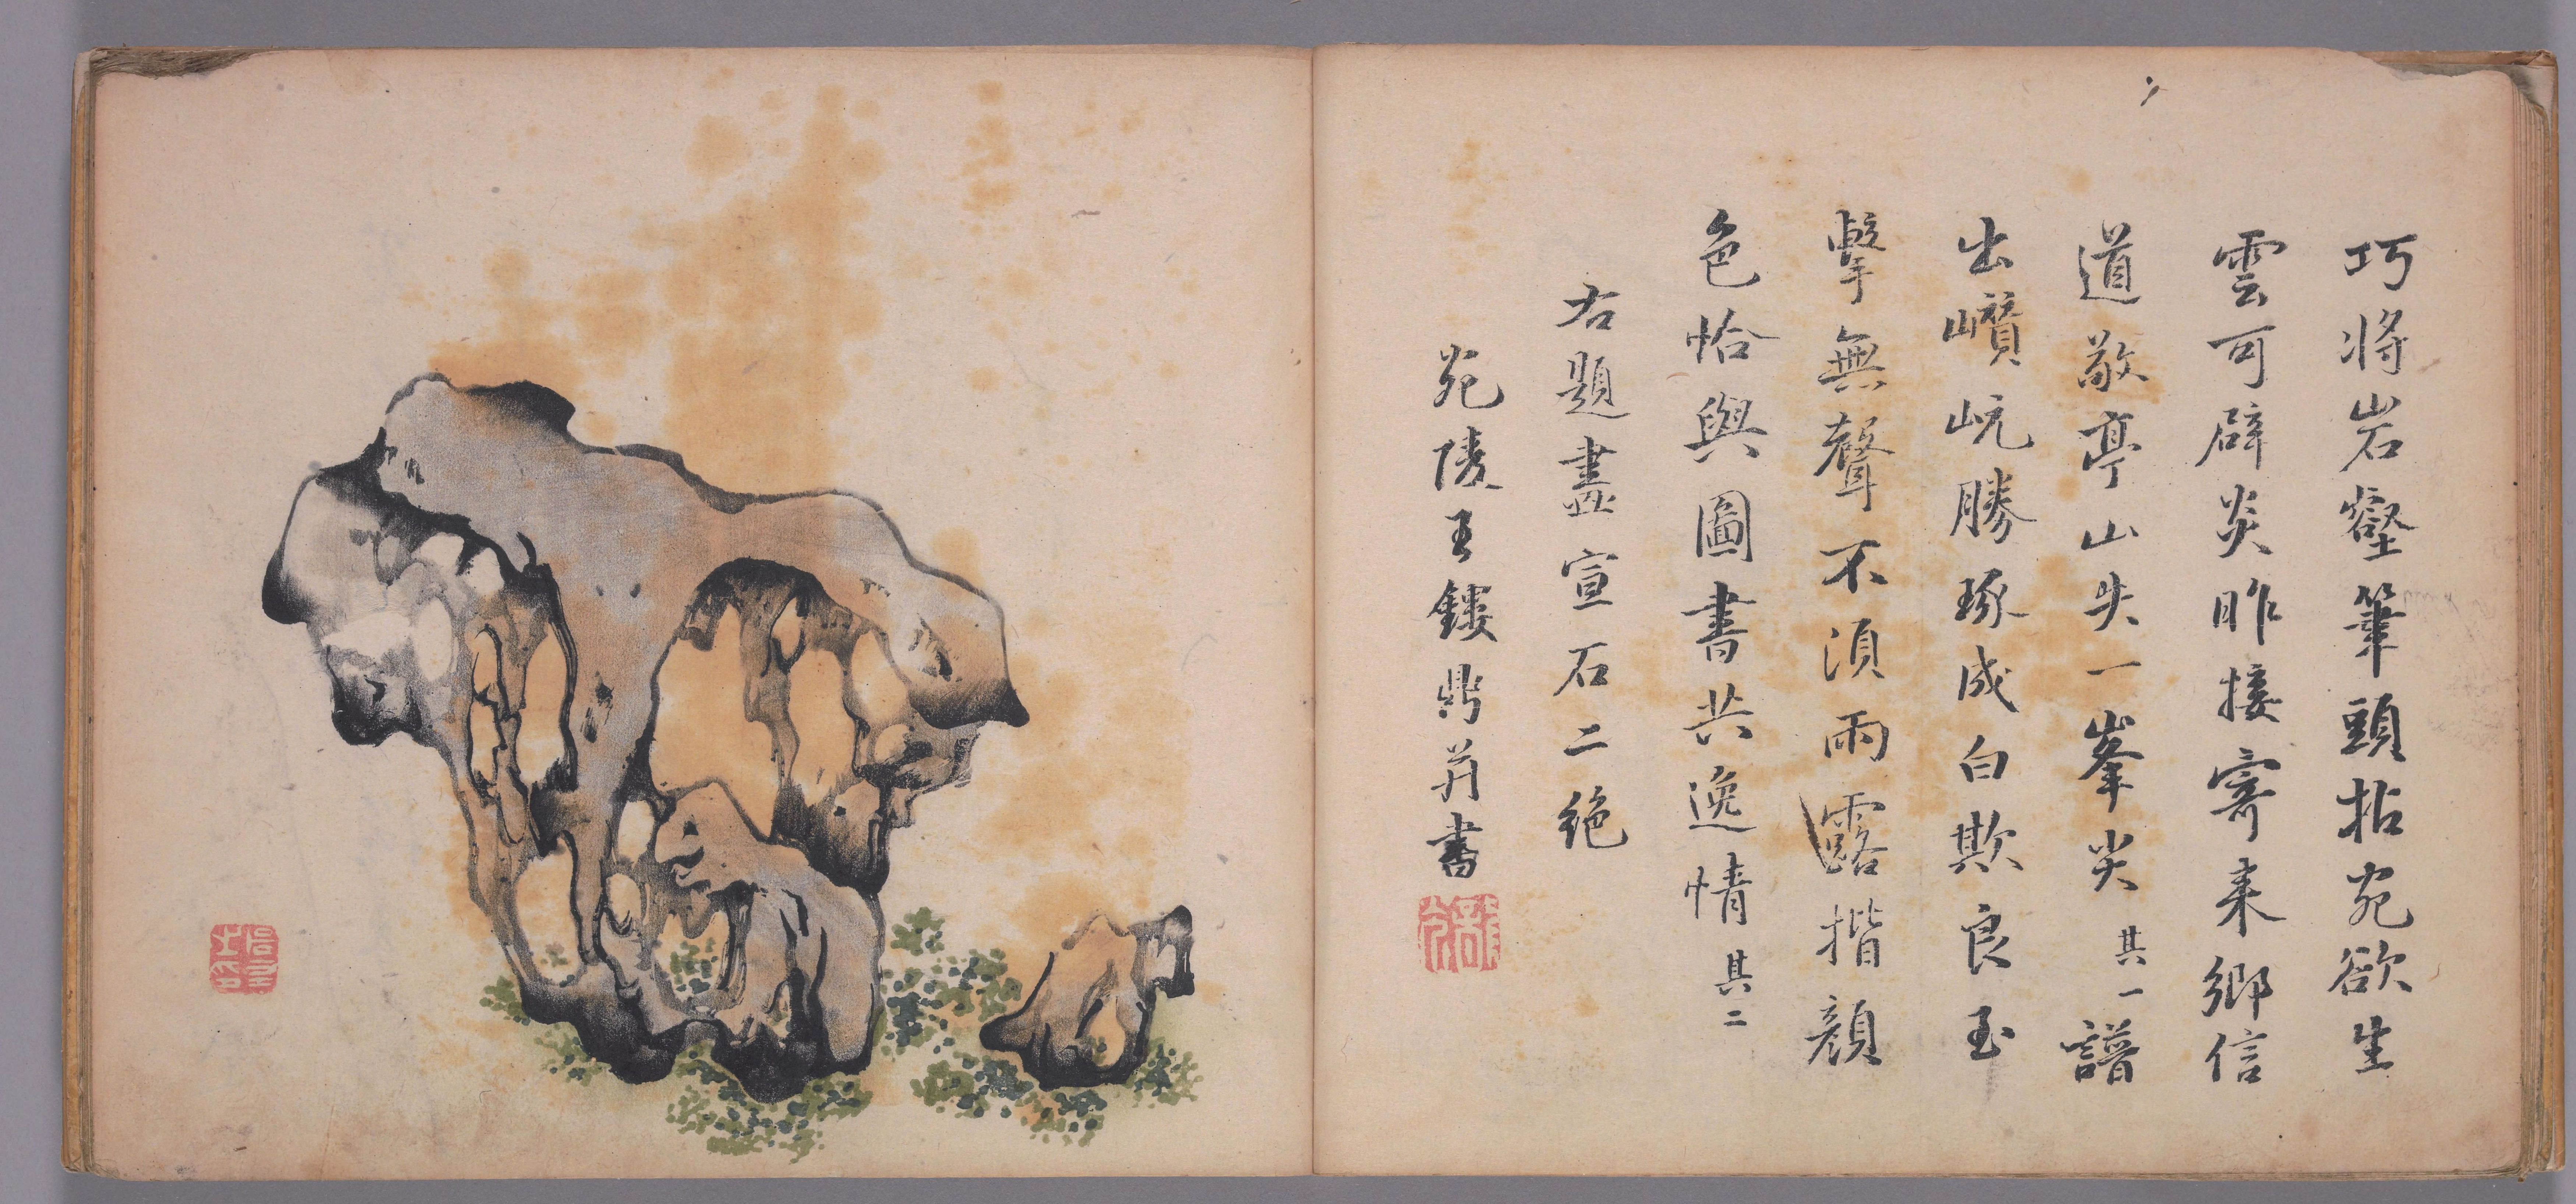 巧將岩壑筆頭拈宛欲生
雲可辟炎昨接寄来鄉信
道敬亭山失一峯尖其一譜
出巑岏勝琢成白欺良玉
擊無聲不須雨露揩顔
色恰與圖書共逸情其二
右題畫宣石二絶
宛陵王鏤鼎并書